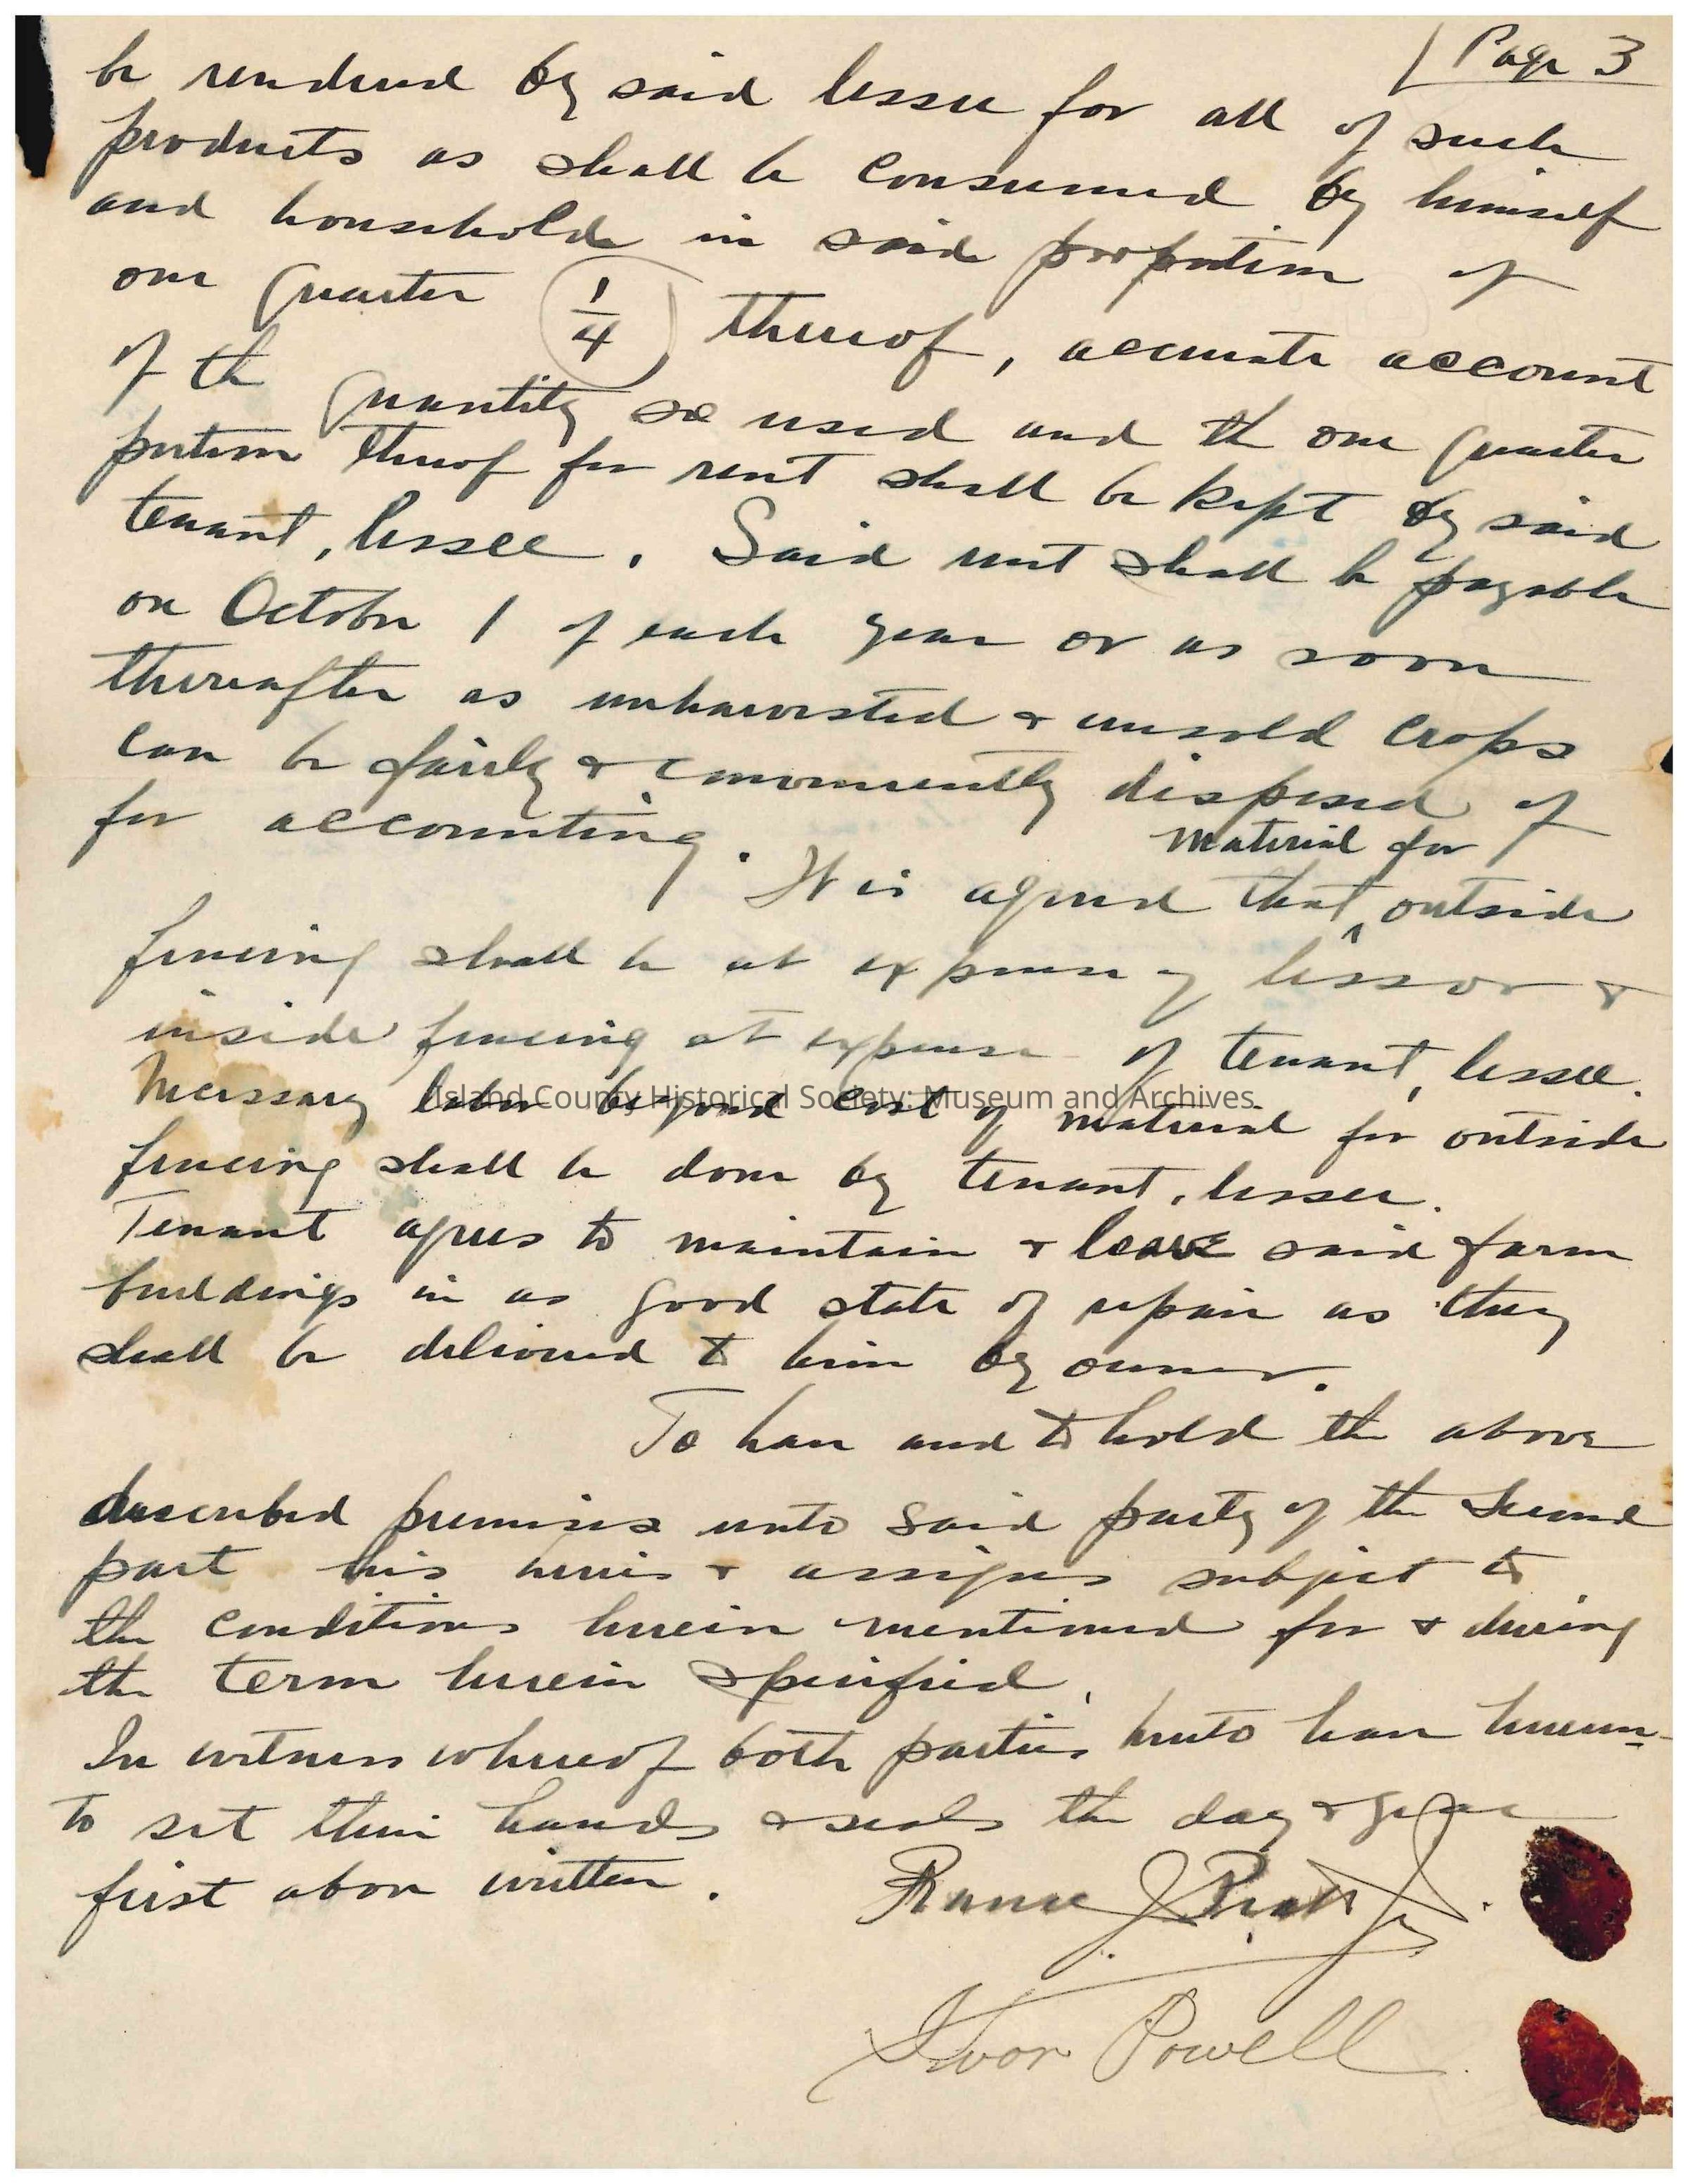 Page 3
be rendered by said lessee for all of such
products as shall be consumed by himself
and household in said proportion of
one quarter (1/4) thereof, accurate account
of the quantity so used and the one quarter
portion thereof for rent shall be kept by said
tenant, lessee. Said rent shall be payable
on October 1 of each year or as soon
thereafter as unharvested & unsold crops
can be fairly & conveniently disposed of
for accounting. It is agreed that ^ material for outside
fencing shall be at expense of lessor &
inside fencing at expense of tenant, lessee.
Necessary labor beyond cost of material for outside
Island County Historical Society: Museum and Archives
fencing shall be done by tenant, lessee.
Tenant agrees to maintain & leave said farm
buildings in as good state of repair as they
shall be delivered to him by owner.
To have and to hold the above
described premises unto said party of the second
part his heirs & assigns subject to
the conditions herein mentioned for & during
the term herein specified.
In witness whereof both parties hereto have hereun-
to set their hands & seals the day & year
first above written.
J. Pratt Jr.
Ivor Powell